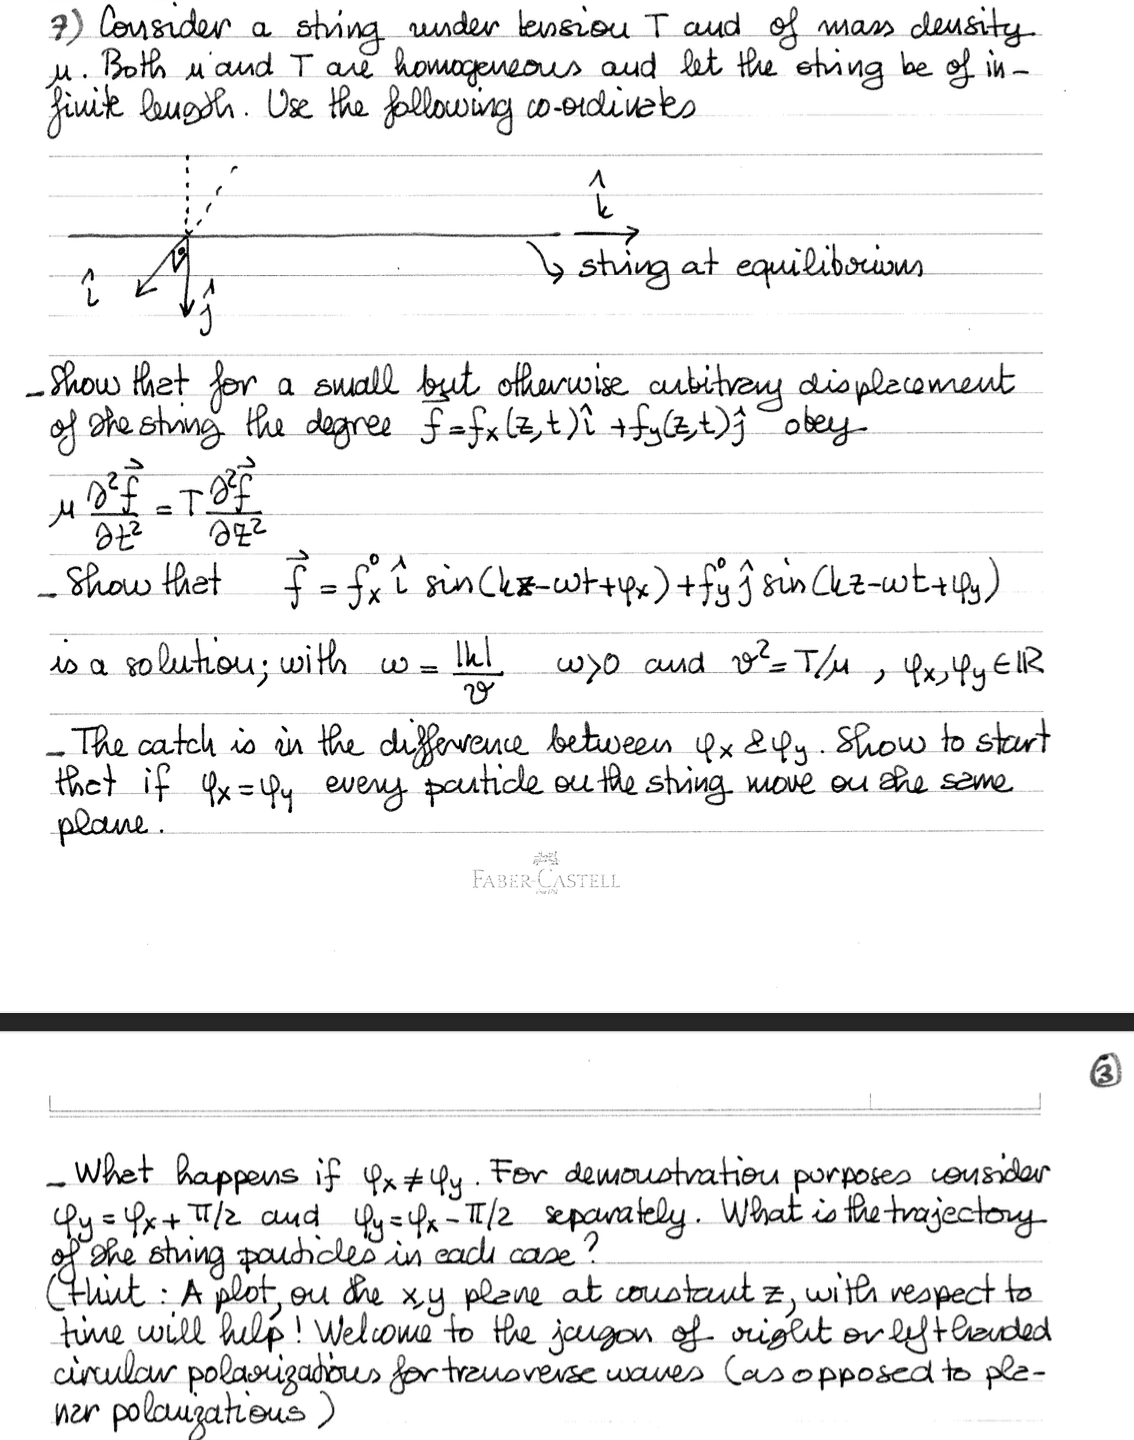 7) Consider a string under tension T and of mass density
μ. Both μ and T are homogeneous and let the string be of in-
finite length. Use the following co-ordinates
k̂
string at equilibrium
î
ĵ
- Show that for a small but otherwise arbitrary displacement
of the string the degree f⃗ = fx(z,t)î + fy(z,t)ĵ obey
μ ∂²f⃗/∂t² = T ∂²f⃗/∂z²
- Show that f⃗ = fx⁰ î sin(kz-ωt+φx) + fy⁰ ĵ sin(kz-ωt+φy)
is a solution; with ω = |k|/v ω>0 and v² = T/μ , φx, φy ∈ ℝ
- The catch is in the difference between φx & φy. Show to start
that if φx = φy every particle on the string move on the same
plane.
FABER-CASTELL
3
- What happens if φx ≠ φy. For demonstration purposes consider
φy = φx + π/2 and φy = φx - π/2 separately. What is the trajectory
of the string particles in each case?
(Hint : A plot, on the x,y plane at constant z, with respect to
time will help! Welcome to the jargon of right or left handed
circular polarizations for transverse waves (as opposed to pla-
nar polarizations)